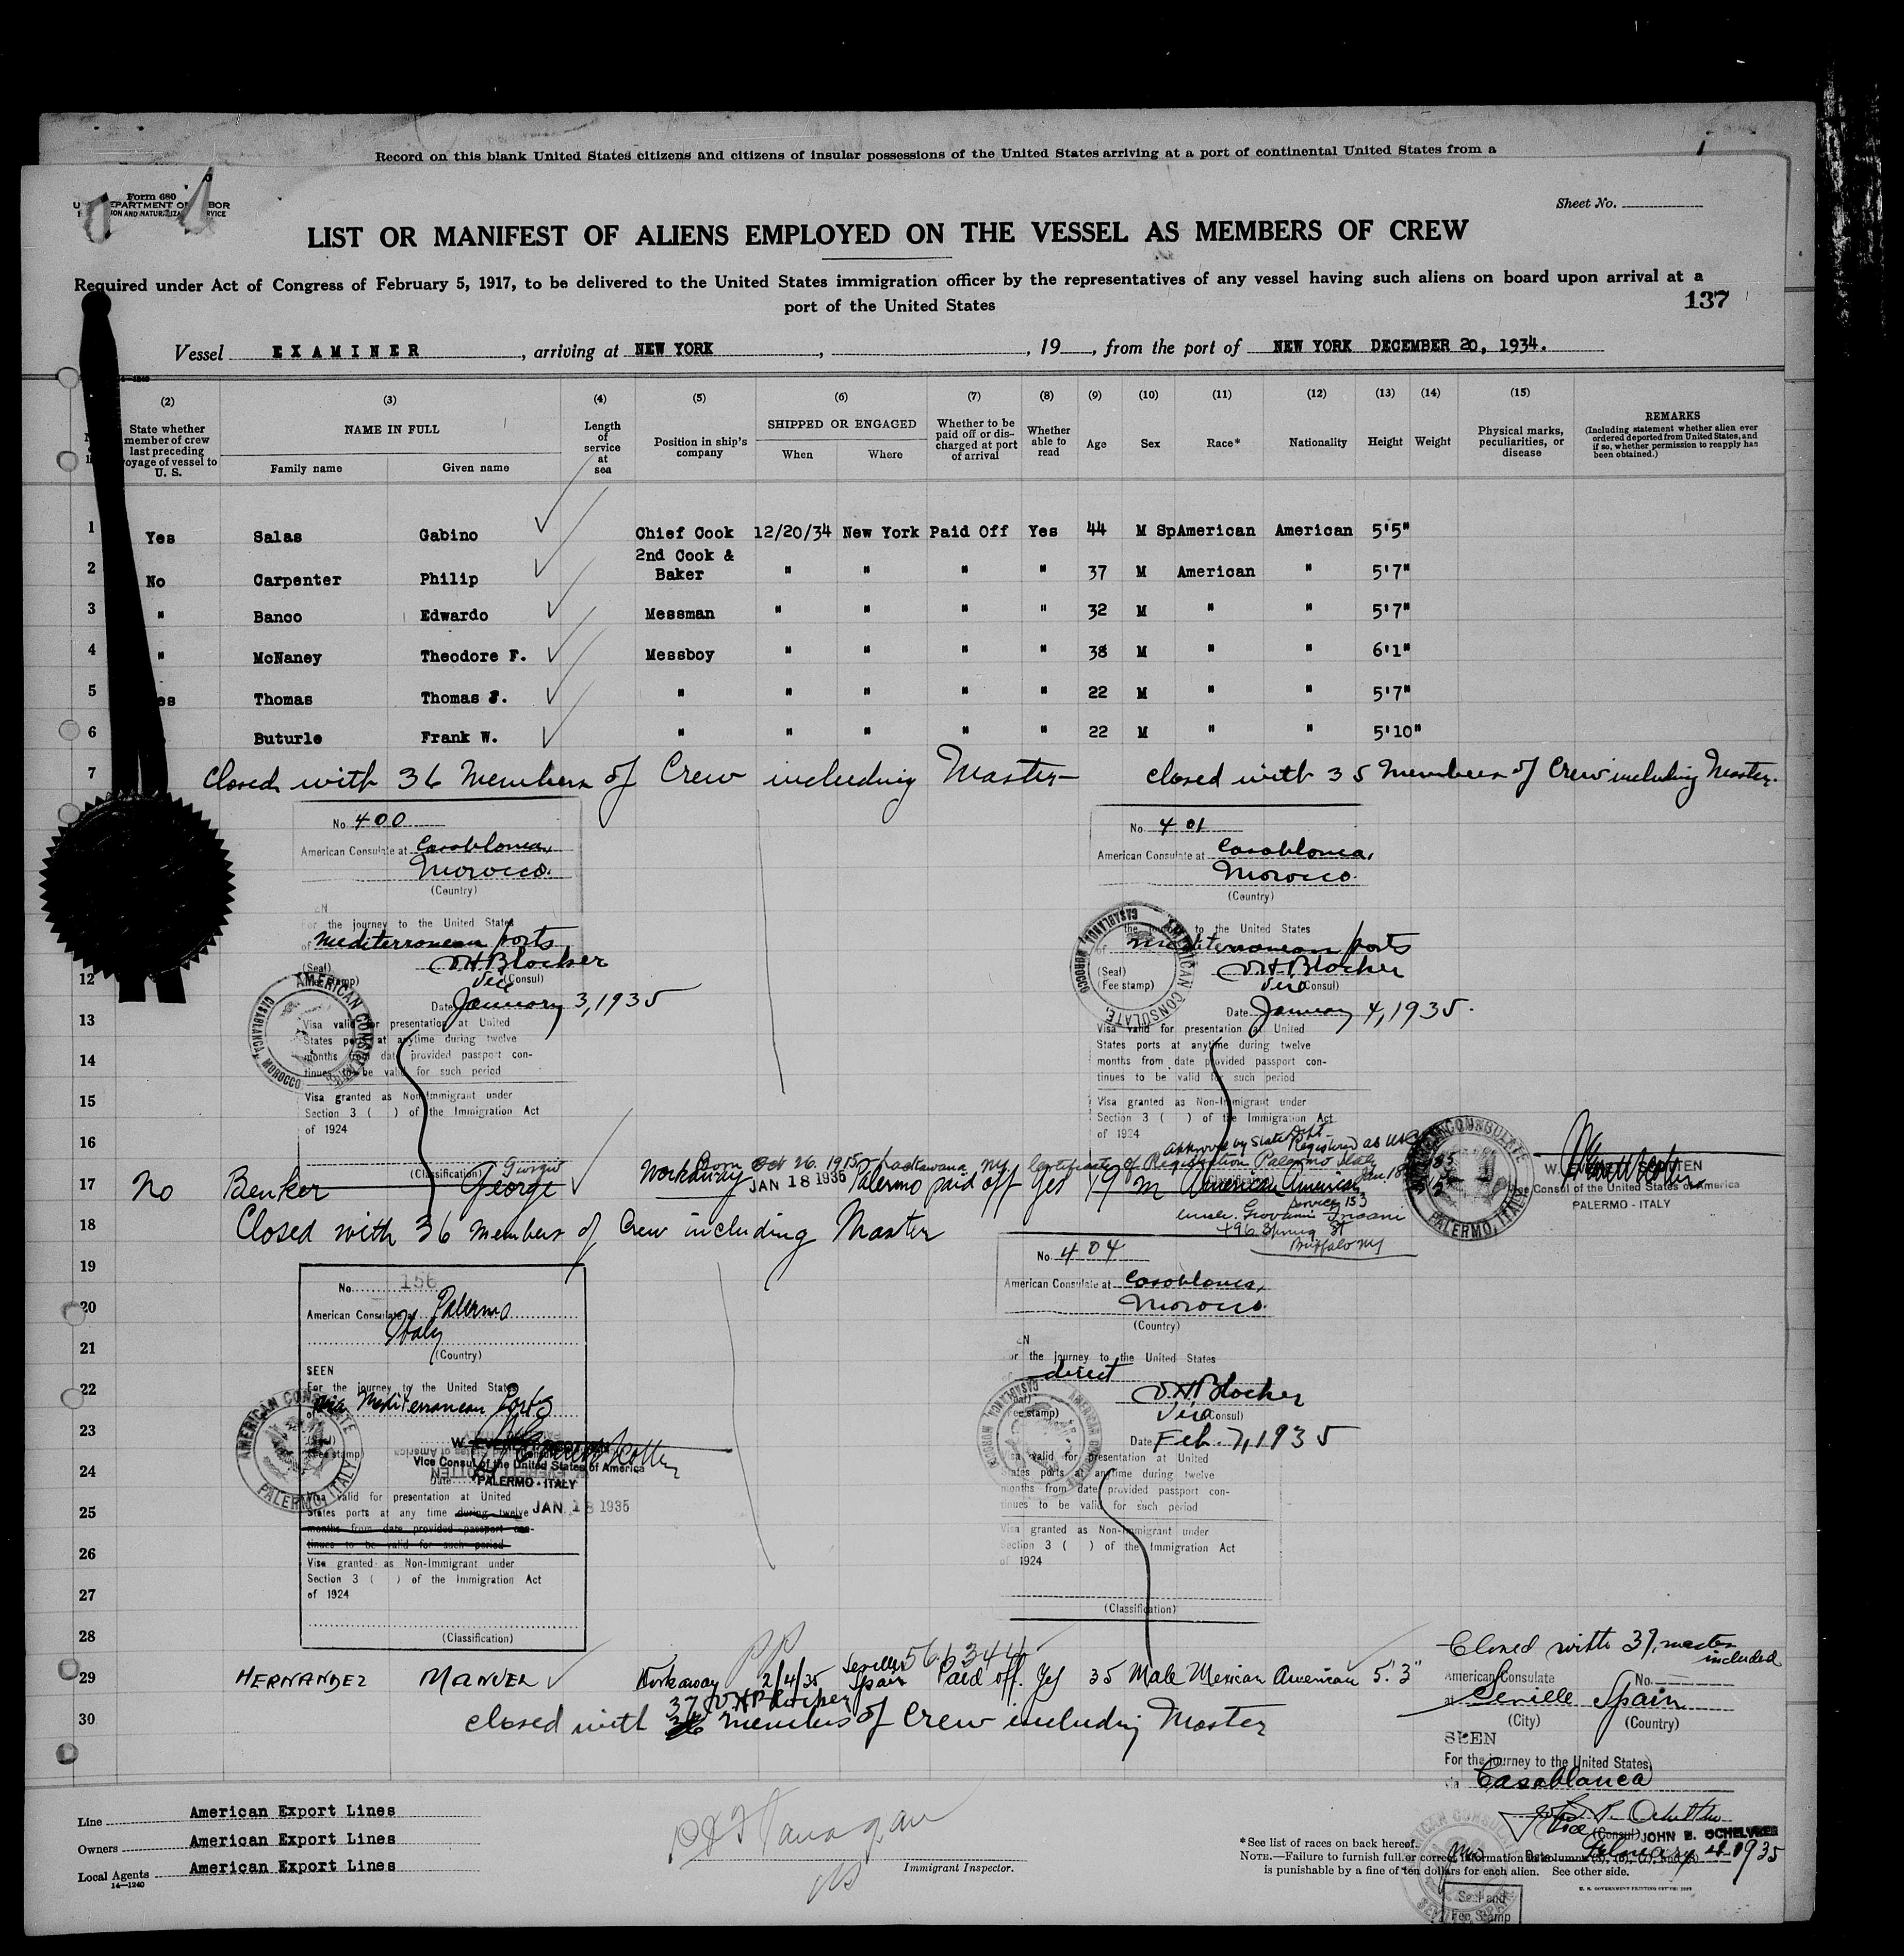 Record on this blank United States citizens and citizens of insular possessions of the United States arriving at a port of continental United States from a
Form 680
Sheet No.
LIST OR MANIFEST OF ALIENS EMPLOYED ON THE VESSEL AS MEMBERS OF CREW
Required under Act of Congress of February 5, 1917, to be delivered to the United States immigration officer by the representatives of any vessel having such aliens on board upon arrival at a
port of the United States
137
Vessel EXAMINER, arriving at NEW YORK, , 19 , from the port of NEW YORK DECEMBER 20, 1934.
(2) (3) (4) (5) (6) (7) (8) (9) (10) (11) (12) (13) (14) (15)
State whether member of crew last preceding voyage of vessel to U. S.
NAME IN FULL
Family name Given name
Length of service at sea
Position in ship's company
SHIPPED OR ENGAGED
When Where
Whether to be paid off or discharged at port of arrival
Whether able to read
Age Sex Race* Nationality Height Weight
Physical marks, peculiarities, or disease
REMARKS
(Including statement whether alien ever ordered deported from United States, and if so, whether permission to reapply has been obtained.)
1 Yes Salas Gabino Chief Cook 12/20/34 New York Paid Off Yes 44 M SpAmerican American 5'5"
2 No Carpenter Philip 2nd Cook & Baker " " " " 37 M American " 5'7"
3 " Banco Edwardo Messman " " " " 32 M " " 5'7"
4 " McNaney Theodore F. Messboy " " " " 38 M " " 6'1"
5 Thomas Thomas J. " " " " " 22 M " " 5'7"
6 Buturle Frank W. " " " " " 22 M " " 5'10"
7 Closed with 36 Members of Crew including Master closed with 35 Members of Crew including Master.
No. 400
American Consulate at Casablanca,
Morocco.
(Country)
For the journey to the United States
of Mediterranean ports
(Seal) VHBlocker
Vice (Consul)
Date January 3, 1935
AMERICAN CONSULATE
CASABLANCA, MOROCCO
Visa valid for presentation at United
States ports at anytime during twelve
months from date provided passport con-
tinues to be valid for such period
Visa granted as Non-Immigrant under
Section 3 ( ) of the Immigration Act
of 1924
(Classification)
No. 401
American Consulate at Casablanca,
Morocco.
(Country)
the journey to the United States
Mediterranean ports
(Seal) VHBlocker
(Fee stamp) Vice (Consul)
Date January 4, 1935.
AMERICAN CONSULATE
CASABLANCA, MOROCCO
Visa valid for presentation at United
States ports at anytime during twelve
months from date provided passport con-
tinues to be valid for such period
Visa granted as Non-Immigrant under
Section 3 ( ) of the Immigration Act
of 1924
12
13
14
15
16
Approved by State Dept.
Registered as
Born Oct 26. 1915 Lackawana NY. Certificate of Registration Palermo Italy
Giorgio
17 No Benker George Workaway JAN 18 1935 Palermo paid off Yes 19 m American American
Service 153
uncle. Giovanni
496 Spring St
Buffalo NY
AMERICAN CONSULATE
PALERMO, ITALY
Vice Consul of the United States of America
PALERMO - ITALY
18 Closed with 36 members of Crew including Master
19
20
21
22
23
24
25
26
27
28
No. 156
American Consulate at Palermo
Italy
(Country)
SEEN
For the journey to the United States
via Mediterranean Ports
AMERICAN CONSULATE
PALERMO, ITALY
Vice Consul of the United States of America
PALERMO - ITALY
JAN 18 1935
Visa valid for presentation at United
States ports at any time during twelve
months from date provided passport con-
tinues to be valid for such period
Visa granted as Non-Immigrant under
Section 3 ( ) of the Immigration Act
of 1924
(Classification)
No. 404
American Consulate at Casablanca,
Morocco.
(Country)
For the journey to the United States
direct
VHBlocker
Vice (Consul)
Date Feb. 7, 1935
Visa valid for presentation at United
States ports at anytime during twelve
months from date provided passport con-
tinues to be valid for such period
Visa granted as Non-Immigrant under
Section 3 ( ) of the Immigration Act
of 1924
(Classification)
PP 566344
29 HERNANDEZ MANUEL Workaway 2/4/35 Seville Spain Paid off. Yes 35 Male Mexican American 5'.3"
37 VHBlocker
30 closed with members of Crew including Master
Closed with 37, master included
American Consulate No.
at Seville Spain
(City) (Country)
SEEN
For the journey to the United States
via Casablanca
Vice (Consul) JOHN B. OCHELTREE
Date February 4 1935
Seal and
Fee Stamp
Line American Export Lines
Owners American Export Lines
Local Agents American Export Lines
14—1240
Immigrant Inspector.
*See list of races on back hereof.
NOTE.—Failure to furnish full or correct information
is punishable by a fine of ten dollars for each alien. See other side.